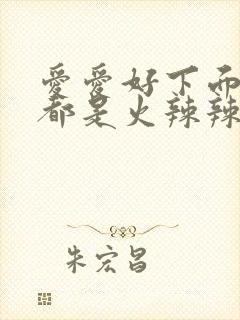 愛愛好下面
都是火辣辣
朱宏昌